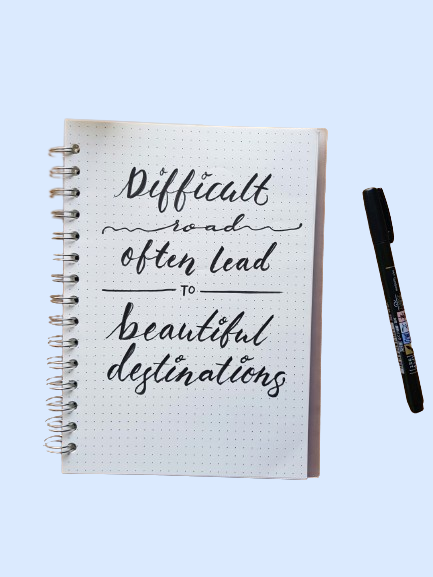 Difficult
road
often lead
TO
beautiful
destinations